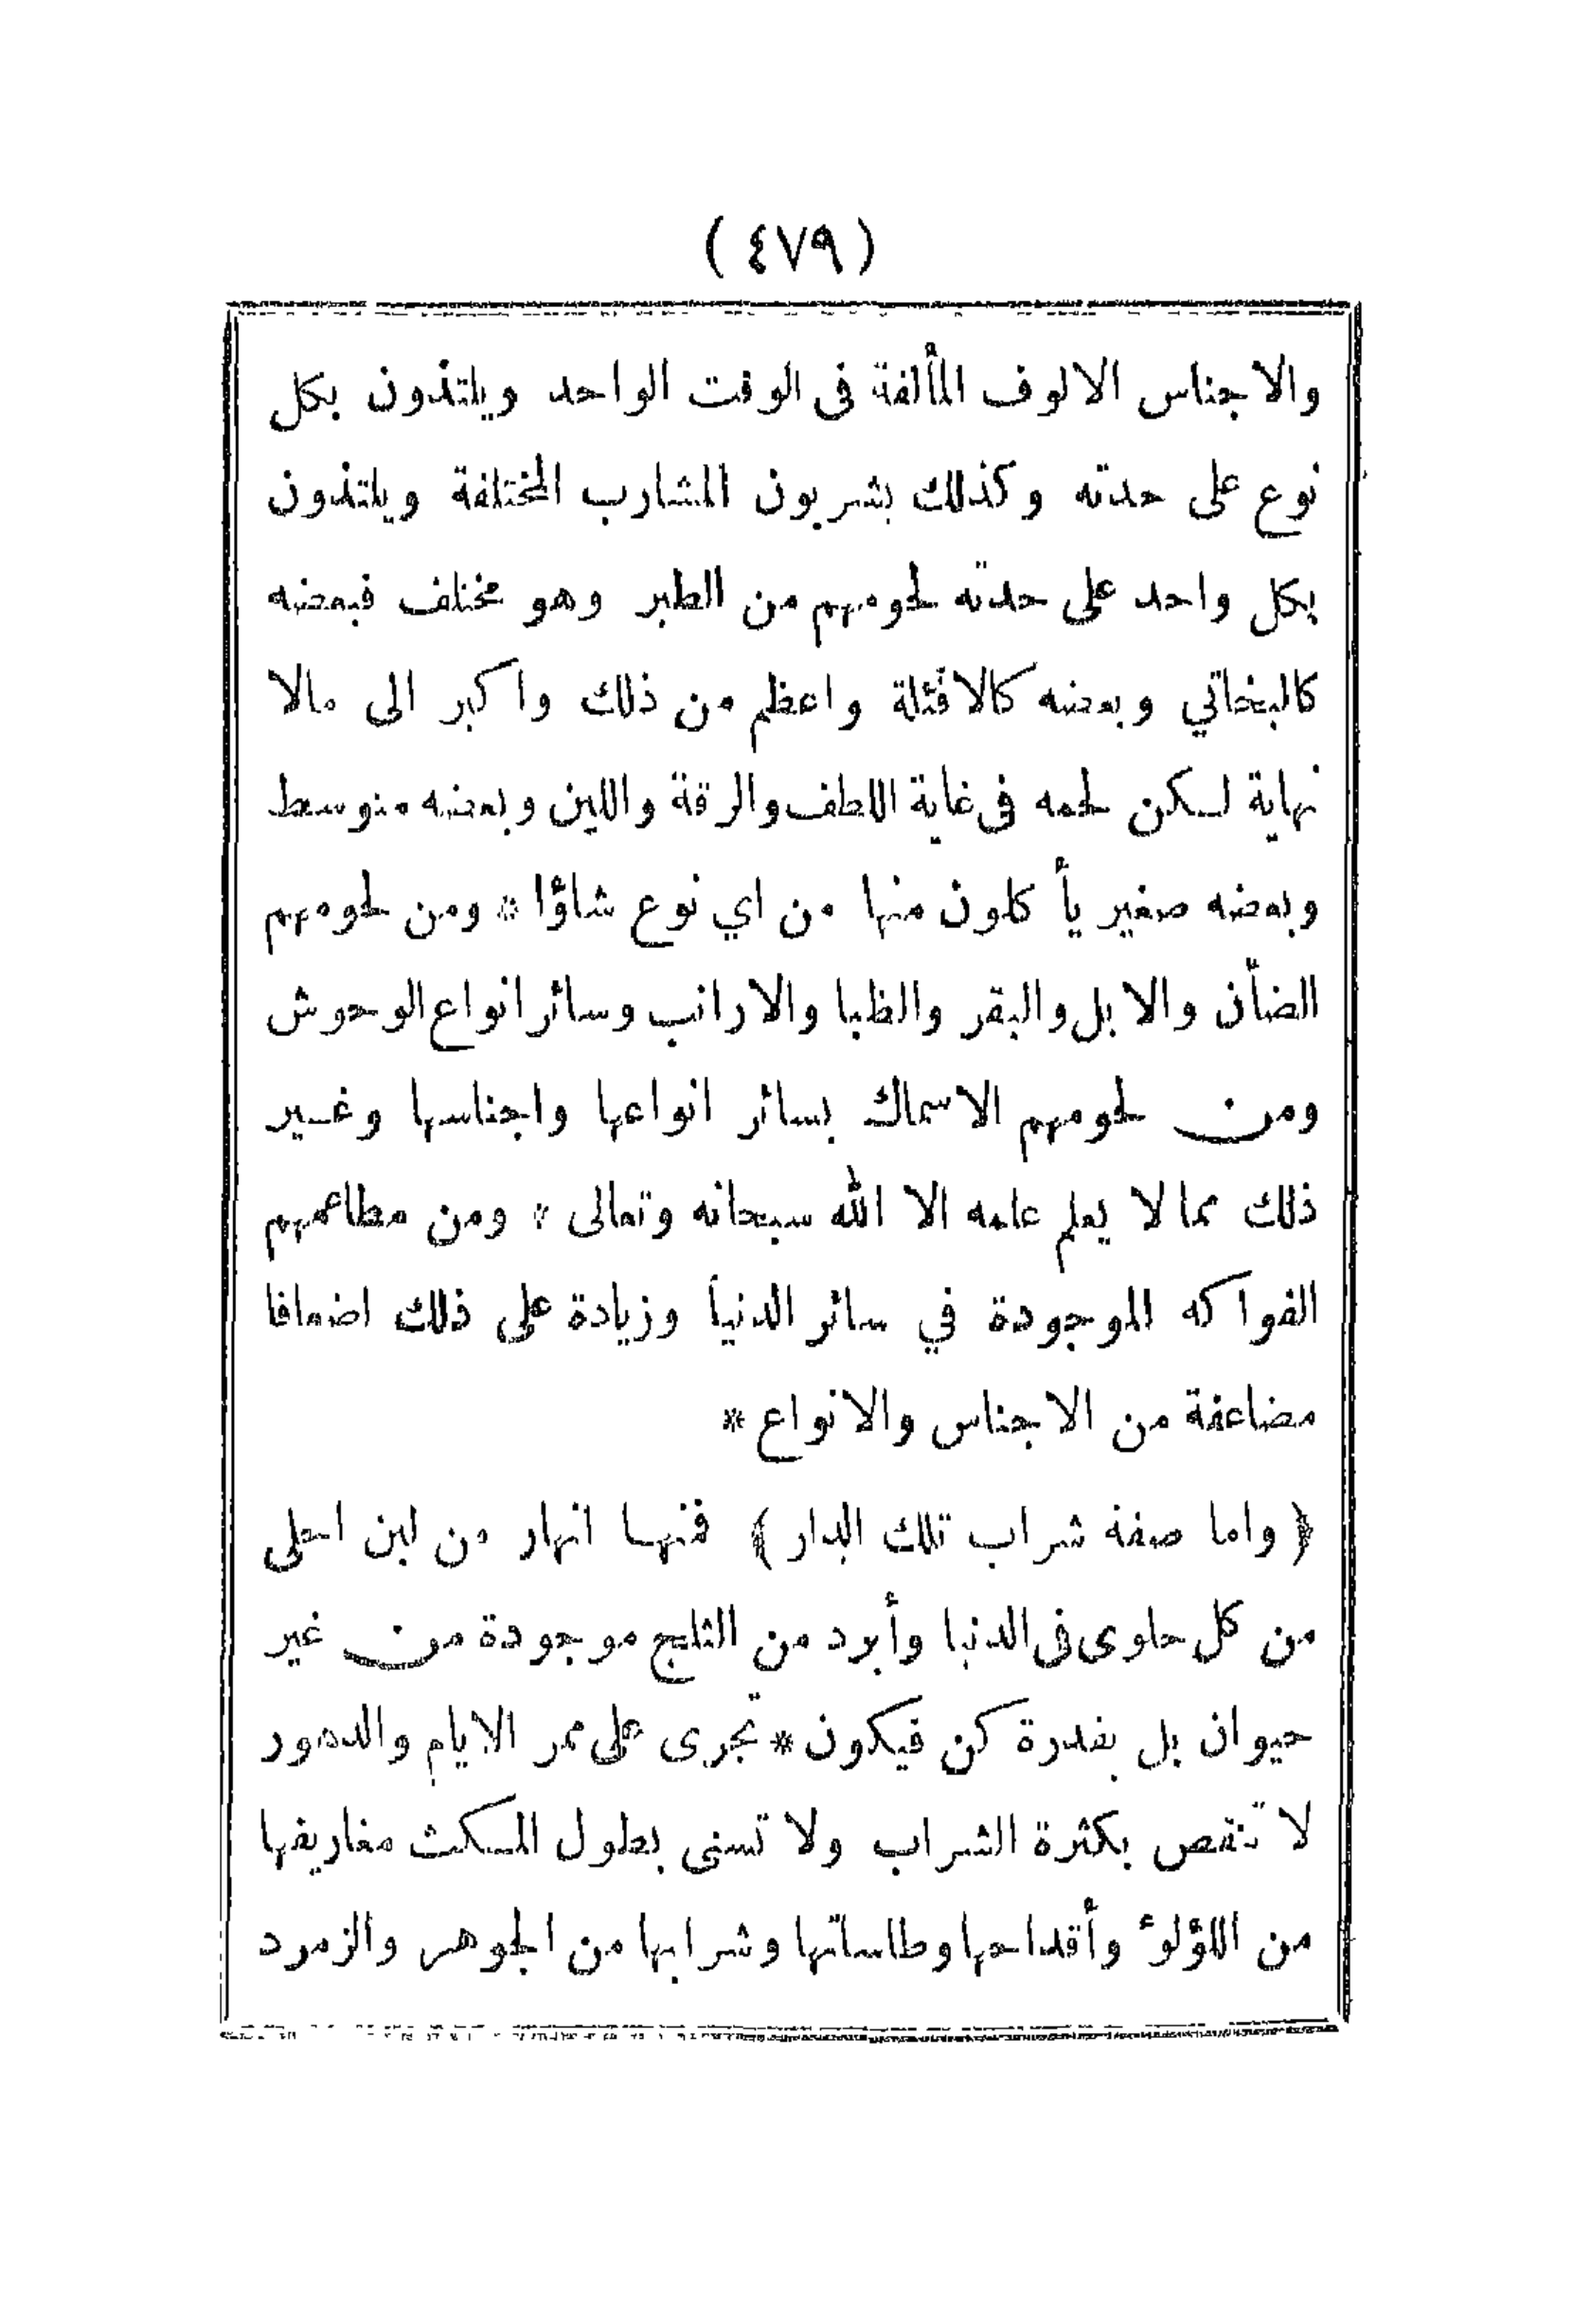 (٤٧٩)
والاجناس الالوف المألفة فى الوقت الواحد ويلتذون بكل
نوع على حدته وكذلك يشربون المشارب المختلفة ويلتذون
بكل واحد على حدته لحومهم من الطير وهو مختلف فبعضه
كالبخاتي وبعضه كالافئلة واعظم من ذلك واكبر الى مالا
نهاية لكن لحمه فى غاية اللطف والرقة واللين وبعضه متوسط
وبعضه صغير يأكلون منها من اي نوع شاؤا * ومن لحومهم
الضأن والابل والبقر والظبا والارانب وسائر انواع الوحوش
ومن لحومهم الاسماك بسائر انواعها واجناسها وغير
ذلك مما لا يعلم علمه الا الله سبحانه وتعالى * ومن مطاعمهم
الفواكه الموجودة في سائر الدنيا وزيادة على ذلك اضعافا
مضاعفة من الاجناس والانواع *
﴿ واما صفة شراب تلك الدار ﴾ فمنها انهار من لبن احلى
من كل حلوى فى الدنيا وأبرد من الثلج موجودة من غير
حيوان بل بقدرة كن فيكون * تجرى على ممر الايام والدهور
لا تنقص بكثرة الشراب ولا تسنى بطول المكث مغاريفها
من اللؤلؤ وأقداحها وطاساتها وشرابها من الجوهر والزمرد